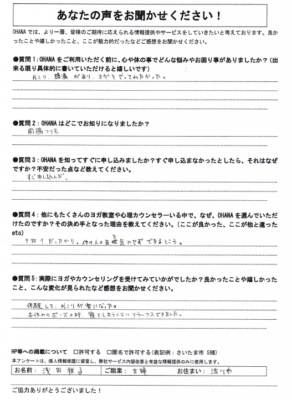 あなたの声をお聞かせください！
OHANA では、より一層、皆様のご期待に応えられる情報提供やサービスをしていきたいと考えております。良か
ったことや嬉しかったこと、ここが魅力的だったなどご感想をお聞かせください。
●質問1：OHANAをご利用いただく前に、心や体の事でどんな悩みやお困り事がありましたか？（出
来る限り具体的に書いていただけると嬉しいです）
肩こり、頭痛があり、ヨガをやってみたかった。
●質問2：OHANAはどこでお知りになりましたか？
●質問3：OHANAを知ってすぐに申し込みましたか？すぐ申し込まなかったとしたら、それはなぜ
ですか？不安だった点など教えてください。
すぐ申し込んだ。
●質問4：他にもたくさんのヨガ教室や心理カウンセラーいる中で、なぜ、OHANAを選んでいただ
けたのですか？その決め手となった理由を教えてください。（ここが良かった、ここが他と違った
etc）
●質問5：実際にヨガやカウンセリングを受けてみていかがでしたか？良かったことや嬉しかったこ
と、こんな変化が見られたなど感想をお聞かせください。
体験して、肩こりが楽になった。
リラックスできました。
HP等への掲載について　□許可する　□匿名で許可する(表記例：さいたま市 S様)
本アンケートは、個人情報保護に留意し、弊社サービス内容改善と有益な情報提供のみに使用します。
お名前：　ご職業：主婦　お住まい：
ご協力ありがとうございました！